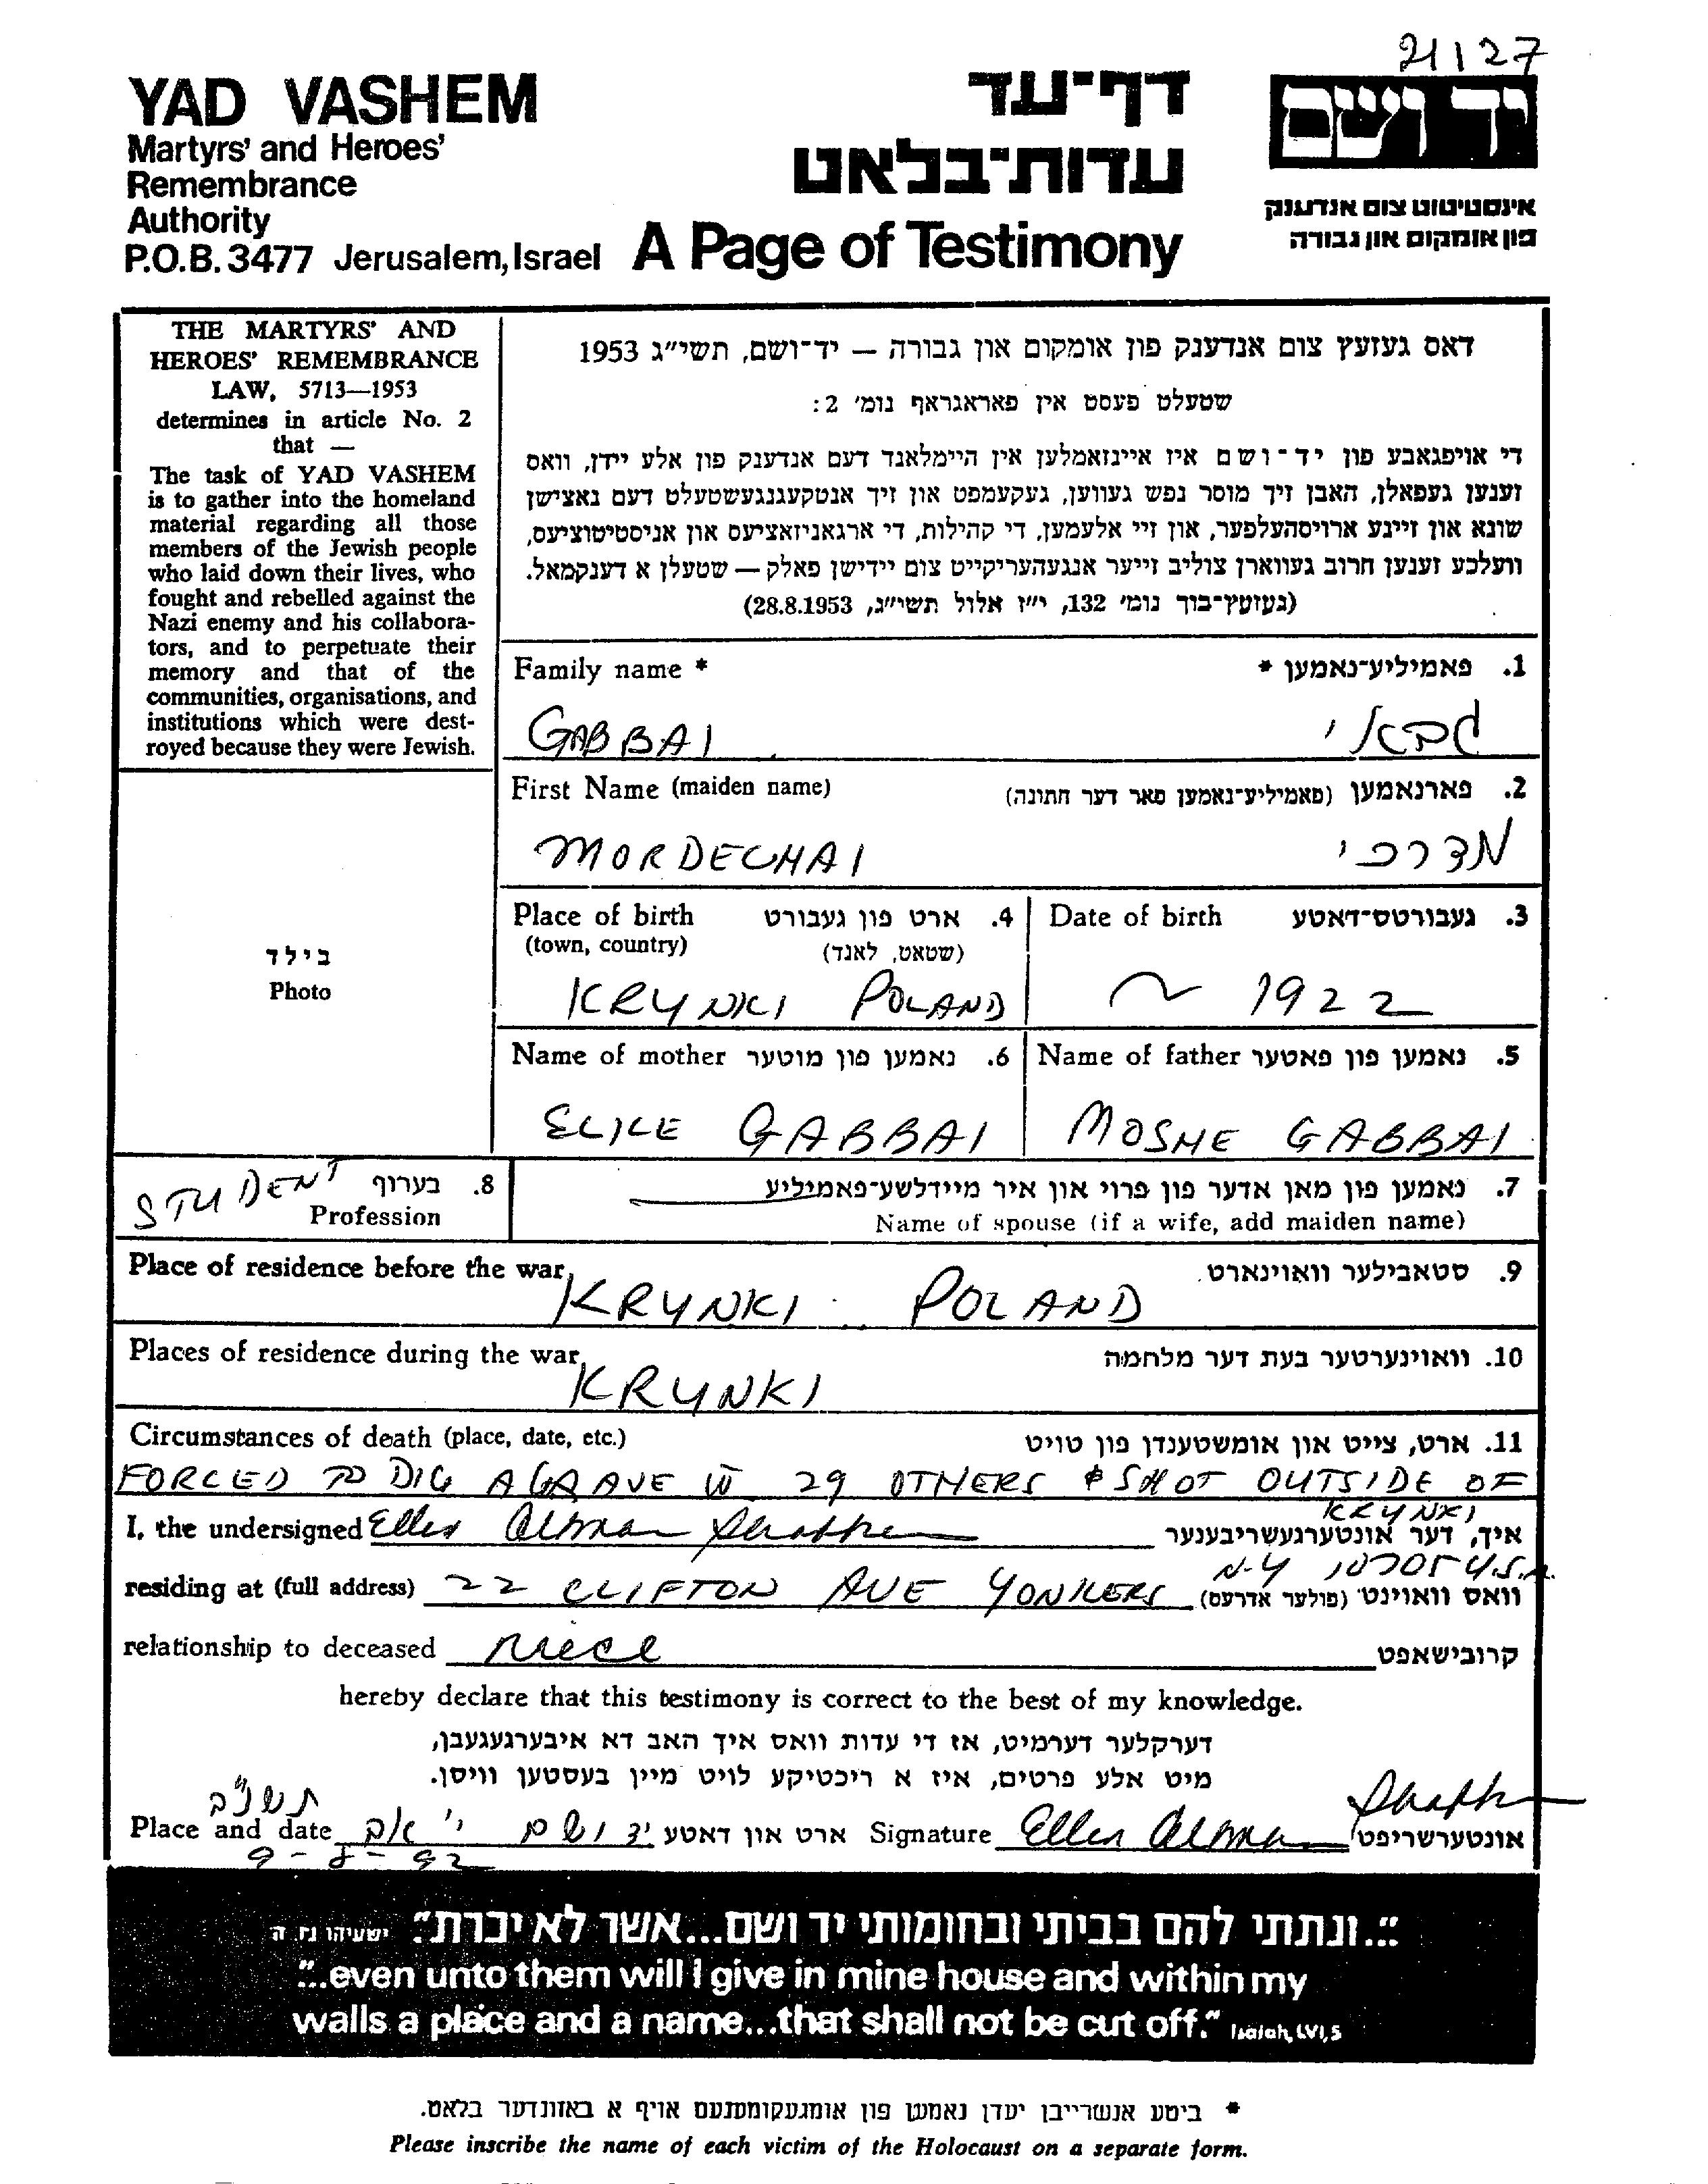 21127
YAD VASHEM
Martyrs' and Heroes'
Remembrance
Authority
P.O.B. 3477 Jerusalem, Israel
דף־עד
עדות־בלאט
A Page of Testimony
יד ושם
אינסטיטוט צום אנדענק
פון אומקום און גבורה
THE MARTYRS' AND
HEROES' REMEMBRANCE
LAW, 5713—1953
determines in article No. 2
that —
The task of YAD VASHEM
is to gather into the homeland
material regarding all those
members of the Jewish people
who laid down their lives, who
fought and rebelled against the
Nazi enemy and his collabora-
tors, and to perpetuate their
memory and that of the
communities, organisations, and
institutions which were dest-
royed because they were Jewish.
דאס געזעץ צום אנדענק פון אומקום און גבורה — יד־ושם, תשי״ג 1953
שטעלט פעסט אין פאראגראף נומ׳ 2:
די אויפגאבע פון יד־ושם איז איינזאמלען אין היימלאנד דעם אנדענק פון אלע יידן, וואס
זענען געפאלן, האבן זיך מוסר נפש געווען, געקעמפט און זיך אנטקעגנגעשטעלט דעם נאצישן
שונא און זיינע ארויסהעלפער, און זיי אלעמען, די קהילות, די ארגאניזאציעס און אניסטיטוציעס,
וועלכע זענען חרוב געווארן צוליב זייער אנגעהעריקייט צום יידישן פאלק — שטעלן א דענקמאל.
(געזעץ־בוך נומ׳ 132, י״ז אלול תשי״ג, 28.8.1953)
Family name * 1. פאמיליע־נאמען *
GABBAI גבאי
First Name (maiden name) 2. פארנאמען (פאמיליע־נאמען פאר דער חתונה)
MORDECHAI מדרכי
בילד
Photo
Place of birth 4. ארט פון געבורט
(town, country) (שטאט, לאנד)
KRYNKI POLAND
Date of birth 3. געבורטס־דאטע
~ 1922
Name of mother 6. נאמען פון מוטער
ELKE GABBAI
Name of father 5. נאמען פון פאטער
MOSHE GABBAI
8. בערוף
STUDENT
Profession
7. נאמען פון מאן אדער פון פרוי און איר מיידלשע־פאמיליע
Name of spouse (if a wife, add maiden name)
Place of residence before the war 9. סטאבילער וואוינארט
KRYNKI POLAND
Places of residence during the war 10. וואוינערטער בעת דער מלחמה
KRYNKI
Circumstances of death (place, date, etc.) 11. ארט, צייט און אומשטענדן פון טויט
FORCED TO DIG A GRAVE W 29 OTHERS & SHOT OUTSIDE OF
KRYNKI
I, the undersigned Ellen Altman איך, דער אונטערגעשריבענער
N.Y 10705 U.S.A.
residing at (full address) 22 CLIFTON AVE YONKERS וואס וואוינט (פולער אדרעס)
relationship to deceased niece קרובישאפט
hereby declare that this testimony is correct to the best of my knowledge.
דערקלער דערמיט, אז די עדות וואס איך האב דא איבערגעגעבן,
מיט אלע פרטים, איז א ריכטיקע לויט מיין בעסטען וויסן.
תשנ״ב
Place and date י׳ אב יד ושם ארט און דאטע Signature Ellen Altman אונטערשריפט
9-8-92
״...ונתתי להם בביתי ובחומותי יד ושם...אשר לא יכרת.״ ישעיהו נו, ה
"...even unto them will I give in mine house and within my
walls a place and a name...that shall not be cut off." Isaiah, LVI,5
* ביטע אנשרייבן יעדן נאמען פון אומגעקומענעם אויף א באזונדער בלאט.
Please inscribe the name of each victim of the Holocaust on a separate form.